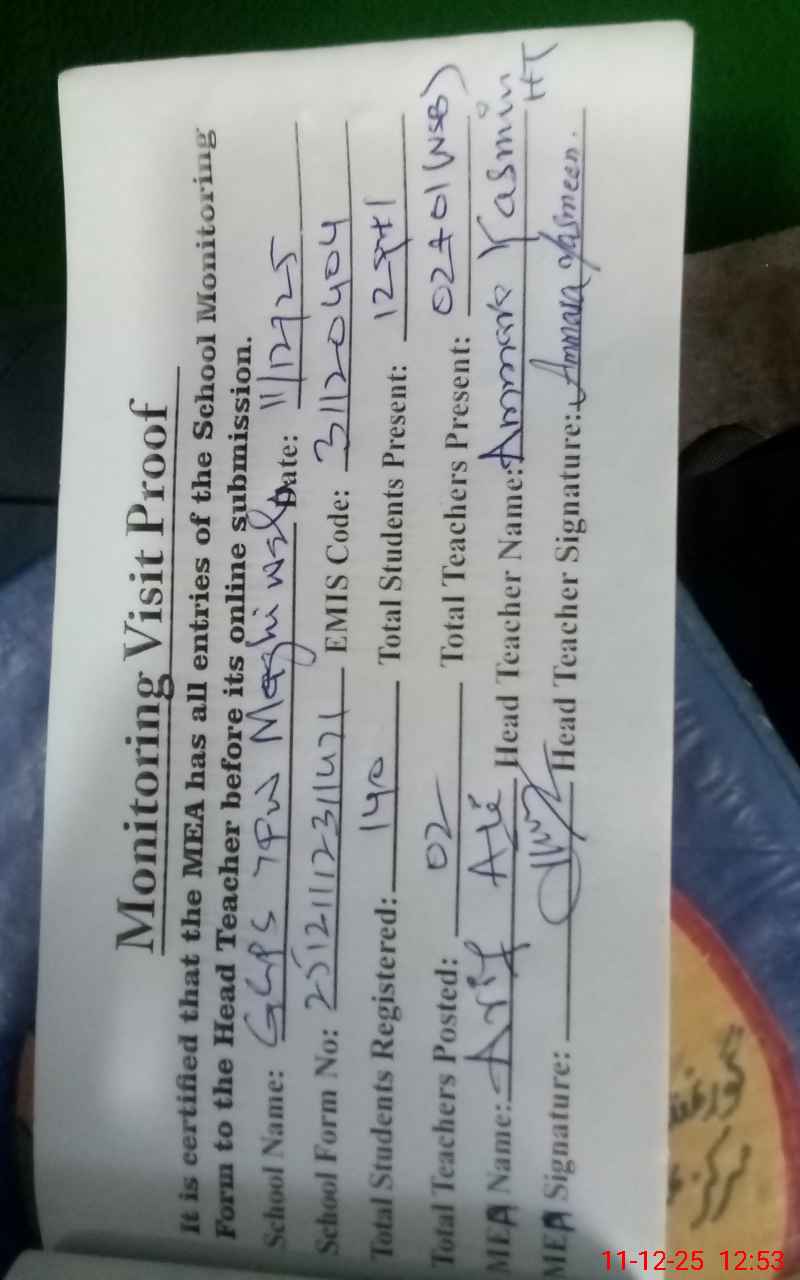 Monitoring Visit Proof
It is certified that the MEA has all entries of the School Monitoring
Form to the Head Teacher before its online submission.
School Name: GGPS 7PW Maghi wala Date: 11/12/25
School Form No: 251211123111471 EMIS Code: 31120404
Total Students Registered: 140 Total Students Present:
Total Teachers Posted: 02 Total Teachers Present: 02+01(NSB)
MEA Name: Arif Ali Head Teacher Name: Ammara Yasmin HT
MEA Signature: Head Teacher Signature: Ammara Yasmeen.
مرکز
11-12-25 12:53